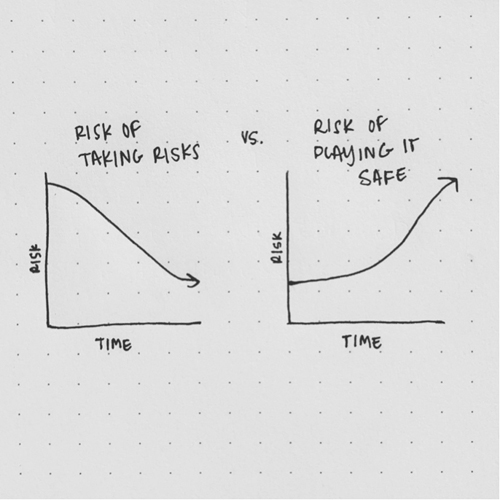 RISK OF
TAKING RISKS
VS.
RISK OF
PLAYING IT
SAFE
RISK
TIME
RISK
TIME